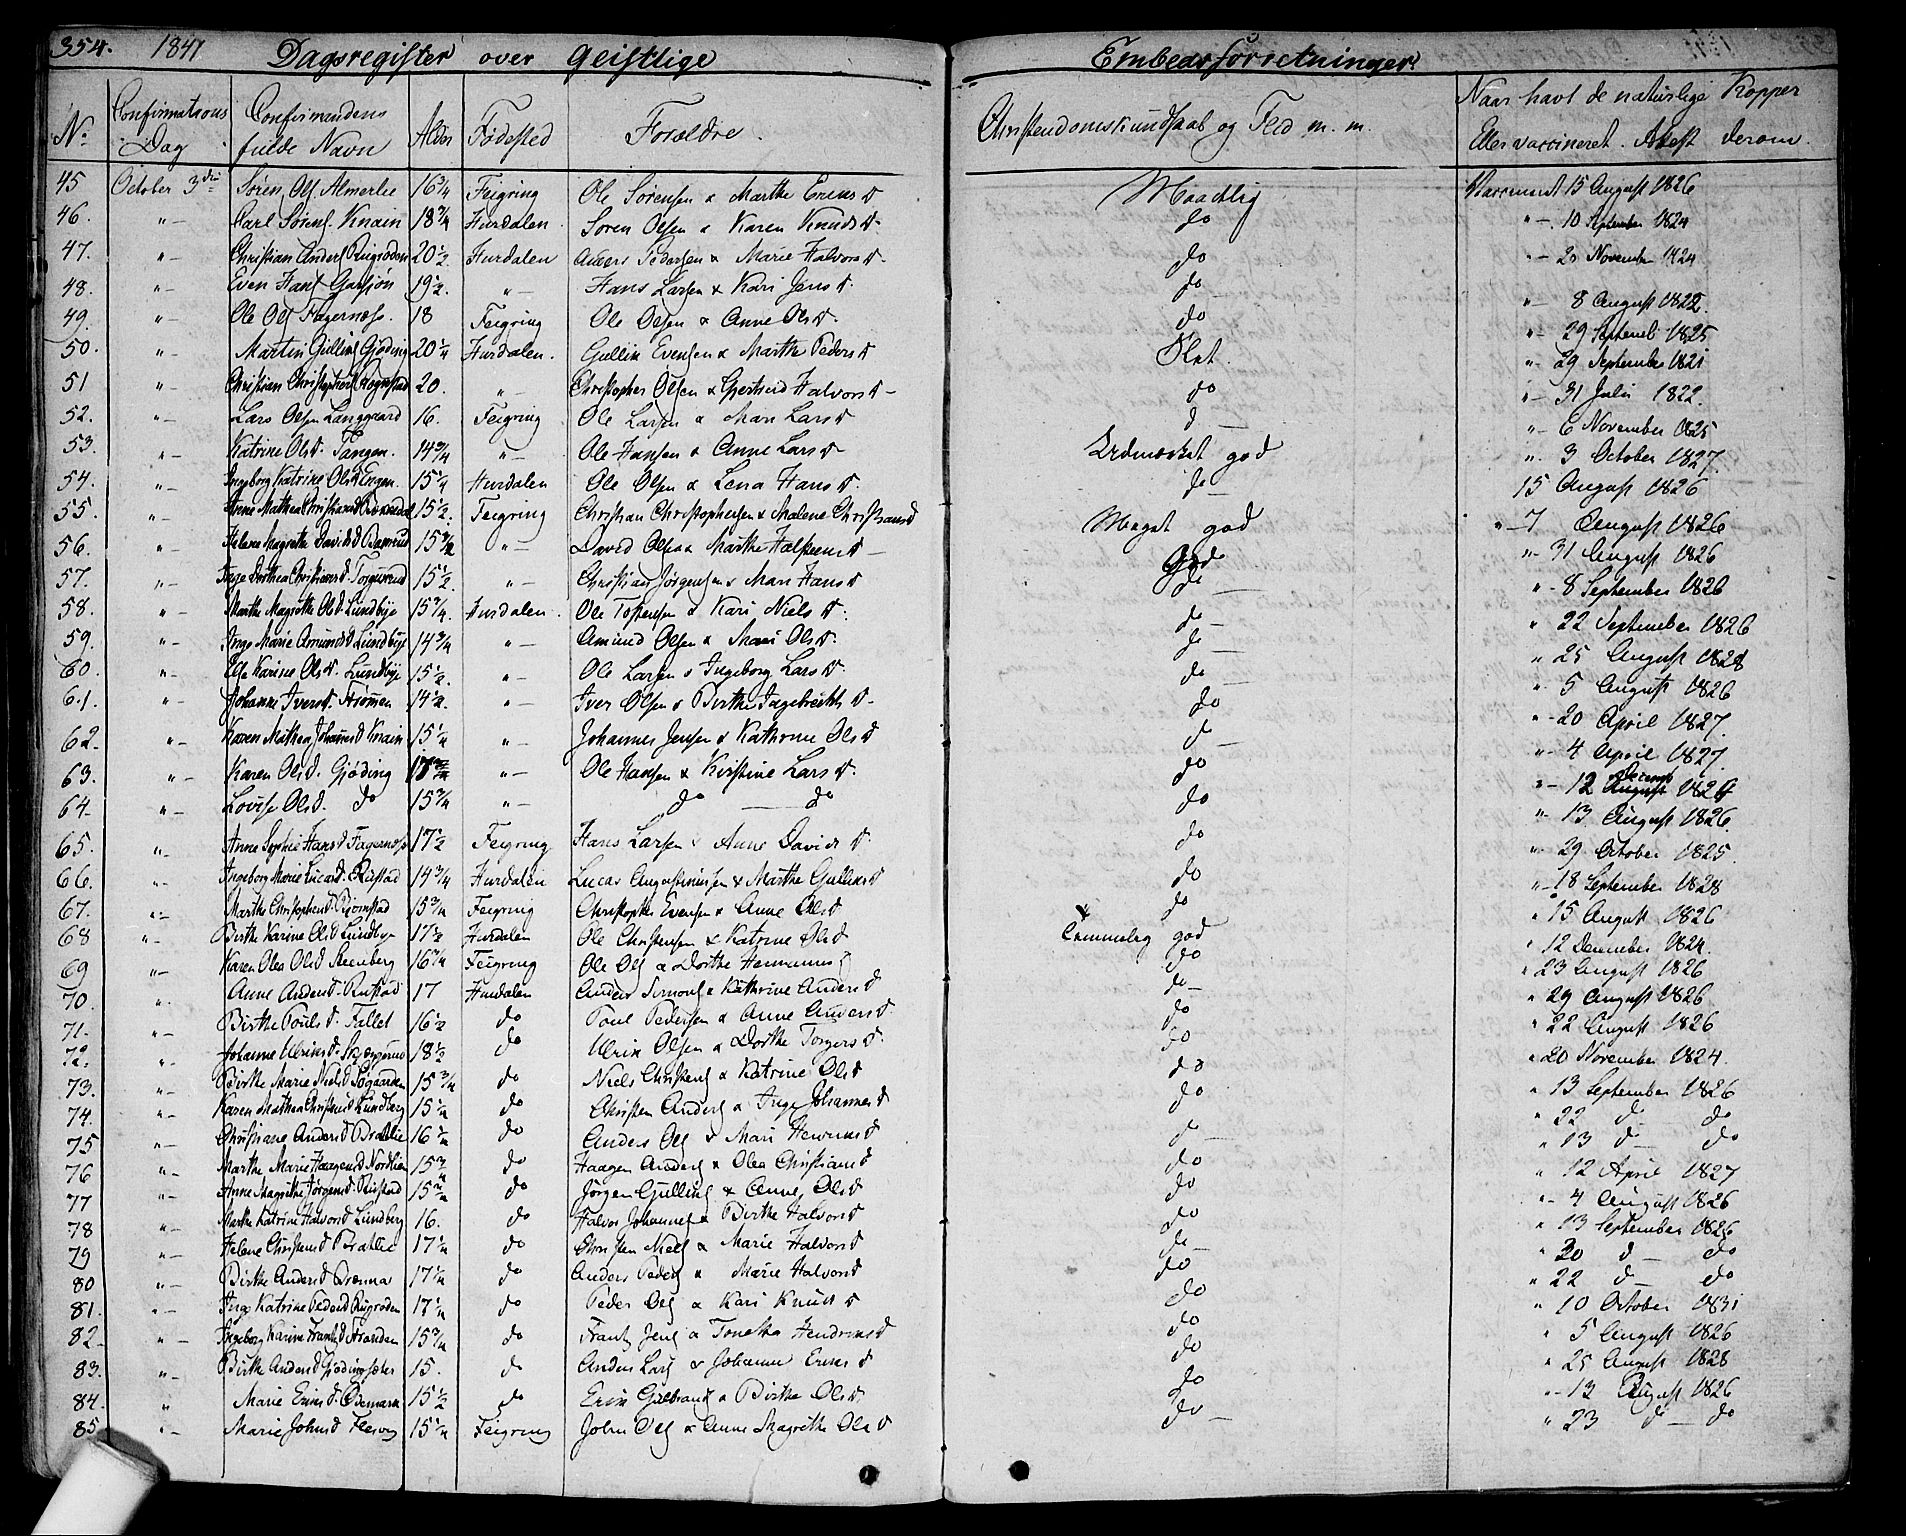 354. 1841 Dagsregister over Geistlige Embedsforretninger.
No. Confirmations Dag Confirmandens fulde Navn Alder Fødested Forældre. Christendomskundskab og Flid m. m. Naar havt de naturlige Kopper Eller vaccineret. Attest derom.
45 October 3die Søren Ols. Almerlie 16 3/4 Feigring Ole Sørensen & Marthe Erens D Maadelig Vaccineret 15 August 1826
46. "— Carl Sørens. Knain 18 3/4 Hurdalen Søren Olsen & Karen Knuds D. do "— 10 September 1824
47. "— Christian Anders. 20 1/2. Hurdalen Anders Pedersen & Marie Halvors D. do "— 20 November 1824
48. "— Even Hans. Garsjøn 19 1/2. "— Hans Larsen & Kari Jens D. do "— 8 August 1822
49. "— Ole Ols. Fagernæss. 18 Feigring Ole Olsen & Anne Ols D. do "— 29 Septemb 1825
50. "— Martin Gullins. Gjøding 20 1/4 Hurdalen. Gullin Evensen & Marthe Peders D Slet. "— 29 September 1821
51 "— Christian Christophers. 20. "— Christopher Olsen & Gjertrud Halvors D — do "— 31 Juli 1822.
52. "— Lars Olsen Langgaard 16. Feigring Ole Larsen & Mari Lars D d — "— 6 November 1825
53. "— Katrine Ols D. Tangen. 14 3/4 "— Ole Hansen & Anne Lars D Udmærket god ". 3 October 1827.
54. "— Ingeborg Katrine Ols D Engen. 15 1/4 Hurdalen Ole Olsen & Lena Hans D do — 15 August 1826
55. "— Anne Mathea Christians D 15 1/2. Feigring Christian Christophersen & Malene Christians D Meget god "— 7 August 1826
56. "— Helene Magrethe Davids D 15 3/4 "— David Olsen & Marthe D — God "— 31 August 1826
57. "— Inge Dorthea Christians D. 15 1/2 "— Christian Jørgensen & Mari Hans D do — "— 8 September 1826
58. "— Marthe Magrethe Ols D. Lundbye 15 3/4. Hurdalen. Ole Tostensen & Kari Niels D. do — " 22 September 1826
59. "— Inge Marie Amunds D Lundbye 14 3/4 "— Amund Olsen & Mari Ols D. do — " 25 August 1828
60. "— Else Karine Ols D. Lundbye 15 1/2. "— Ole Larsen & Ingeborg Lars D. do — ". 5 August 1826
61. "— Johanne Ivers D. Strømen 14 1/2. "— Iver Olsen & Birthe Ingebrechts D — do "— 20 April 1827.
62 "— Karen Mathea Johannes D Knain 15 1/4 "— Johannes Jensen & Kathrine Ols D d — "— 4 April 1827.
63. "— Karen Ols D. Gjøding 17 3/4 "— Ole Hansen & Kirstine Lars D. do "— 12 Decemb August 1824
64. "— Lovise Ols D. do 15 3/4 "— do — do do "— 13 August 1826.
65. "— Anne Sophie Hans D Fagernæss 17 1/2 Feigring Hans Larsen & Anne Davids D. do "— 29 October 1825.
66. "— Ingeborg Marie Lucas D. Rustad 14 3/4 Hurdalen Lucas Augustinusen & Marthe Gullins D do "— 18 September 1828
67. "— Marthe Christophers D. Bjørnstad 15 3/4 Feigring Christopher Evensen & Anne Ols D do " 15 August 1826
68 "— Birthe Karine Ols D Lundbye 17 1/2 Hurdalen Ole Christensen & Katrine Ols D Temmelig god " 12 December 1824.
69 "— Karen Olea Ols D Steenberg 16 3/4 Feigring Ole Ols. & Dorthe do " 23 August 1826
70. ". Anne Anders D. Rustad 17 Hurdalen Anders Simons. & Kathrine Anders D do — " 29 August 1826
71. "— Birthe Pouls D. Fallet 16 1/2 do Poul Pedersen & Anne Anders D. do " 22 August 1826
72. "— Johanne Ulriks D. 18 1/2 do Ulrik Olsen & Dorthe Torgers D. do " 20 November 1824.
73. "— Birthe Marie Niels D. Søgaarden 15 3/4 do Niels Christens. & Katrine Ols D do " 13 September 1826
74. "— Karen Mathea Christens D Lundberg 15 1/4 do Christen Anders. & Inge Johannes D do " 22 d— do
75 "— Christiane Anders D Bratlie 16 1/4 do Anders Ols. & Mari Henriks D do — " 13 d— do
76 "— Marthe Marie Haagens D Nordlien 15 3/4 do Haagen Anders. & Olea Christians D do " 12 April 1827
77 "— Anne Magrethe Jørgens D. Rustad 15 3/4 do Jørgen Gullins. & Anne Ols D do "— 4 August 1826
78 "— Marthe Katrine Halvors D Lundberg 16. do Halvor Johannes. & Birthe Halvors D do " 13 September 1826
79 "— Helene Christens D Bratlie 17 1/4 do Christen Niels. & Marie Halvors D do — " 20 d— do
80 "— Birthe Anders D 17 1/4 do Anders Peders. & Marie Halvors D do " 22 d— do
81. "— Inge Katrine Peders D 17 1/4 do Peder Ols. & Kari Knuds D do " 10 October 1831
82. "— Ingeborg Karine Frants D Stranden 15 3/4 do Frants Jens. & Tonetha Hendriks D do " 5 August 1826
83. "— Birthe Anders D 15. do Anders Lars. & Johanne Eriks D do " 25 August 1828
84. " Marie Eriks D. 15 1/2 do Erik Gulbrands. & Birthe Ols D do "— 13 August 1826
85 "— Marie Johns D Flesvig 15 1/4 Feigring John Ols. & Anne Magrethe Ols D do — " 23 d— do